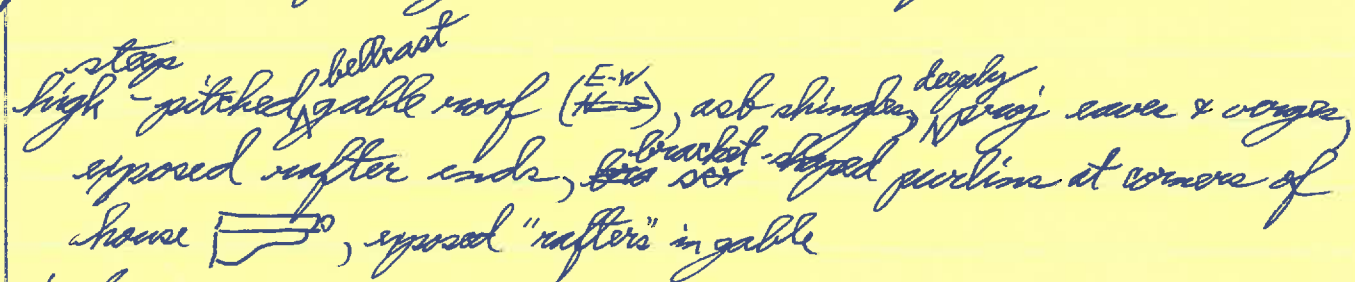 steep bellcast
high-pitched gable roof (E-W N-S), asb shingles, deeply proj eaves & verges,
exposed rafter ends, bra scr bracket-shaped purlins at corners of
house, exposed "rafters" in gable